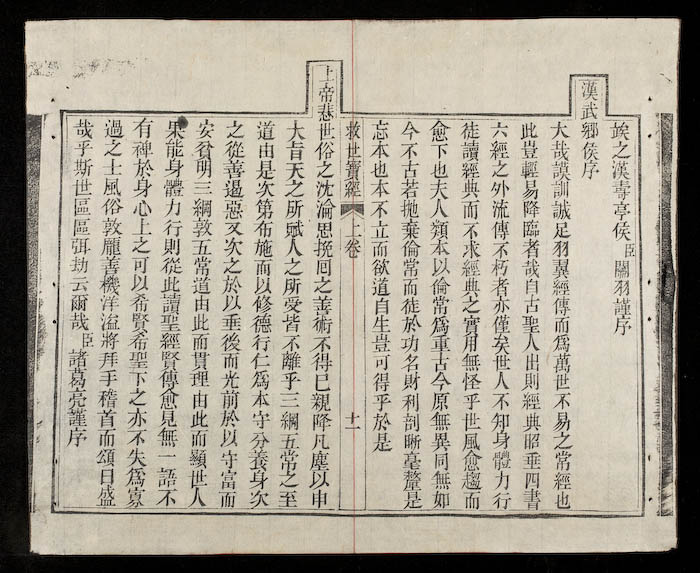 埃之漢壽亭侯臣關羽謹序
漢武鄉侯序
大哉謨訓誠足羽翼經傳而為萬世不易之常經也
此豈輕易降臨者哉自古聖人出則經典昭垂四書
六經之外流傳不朽者亦僅矣世人不知身體力行
徒讀經典而不求經典之實用無怪乎世風愈趨而
愈下也夫人類本以倫常爲重古今原無異同無如
今不古若拋棄倫常而徒於功名財利剖晰毫釐是
忘本也本不立而欲道自生豈可得乎於是
救世寶經 上卷 十一
上帝悲世俗之沈淪思挽回之善術不得已親降凡塵以申
大旨天之所賦人之所受皆不離乎三綱五常之至
道由是次第布施而以修德行仁爲本守分養身次
之從善遏惡又次之於以垂後而光前於以守富而
安貧明三綱敦五常道由此而貫理由此而顯世人
果能身體力行則從此讀聖經賢傳愈見無一語不
有裨於身心上之可以希賢希聖下之亦不失爲寡
過之士風俗敦龐善機洋溢將拜手稽首而頌曰盛
哉乎斯世區區弭劫云爾哉臣諸葛亮謹序